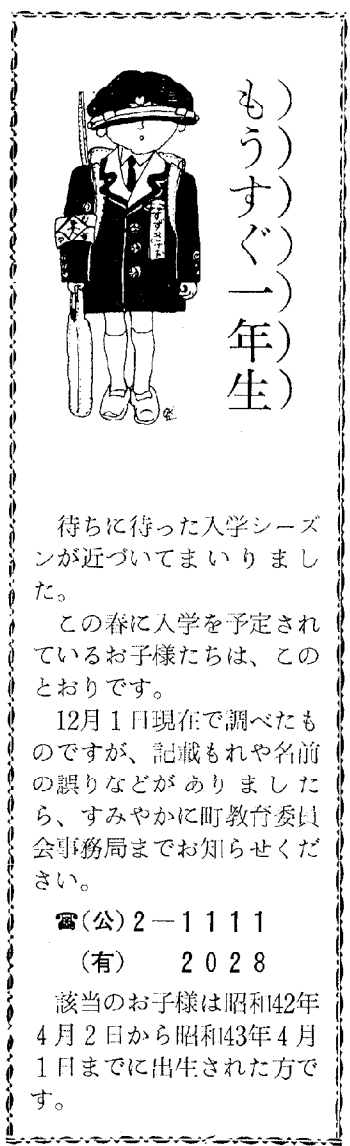 もうすぐ一年生
待ちに待った入学シーズ
ンが近づいてまいりまし
た。
この春に入学を予定され
ているお子様たちは、この
とおりです。
12月1日現在で調べたも
のですが、記載もれや名前
の誤りなどがありました
ら、すみやかに町教育委員
会事務局までお知らせくだ
さい。
☎(公)2―1111
(有)　2028
該当のお子様は昭和42年
4月2日から昭和43年4月
1日までに出生された方で
す。